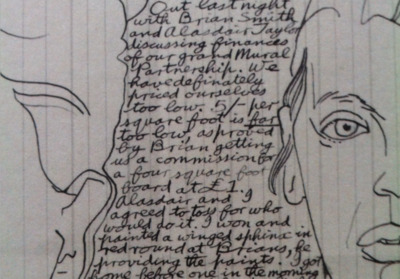 Out last night
with Brian Smith
and Alasdair Taylor
discussing finances
of our grand Mural
Partnership. We
have definately
priced ourselves
too low. 5/- per
square foot is far
too low, as proved
by Brian getting
us a commission for
a four square foot
board at £1.
Alasdair and I
agreed to toss for who
would do it. I won and
painted a winged sphinx in
red round at Brians, he
providing the paints. I got
home before one in the morning